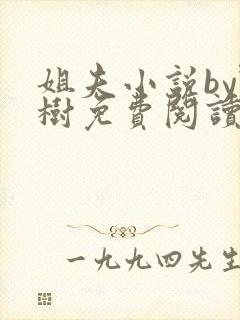 姐夫小说by
樹免費閱讀
一九九四先生